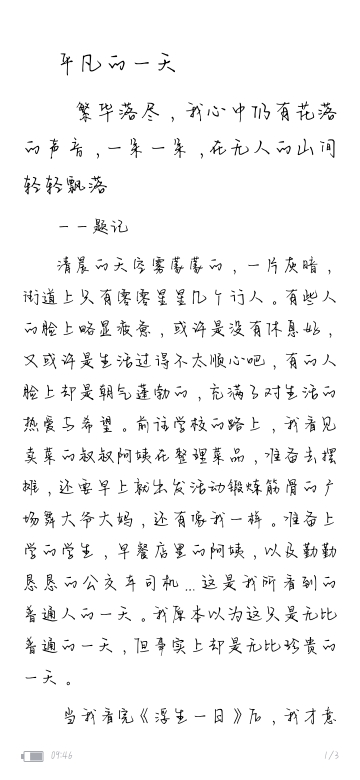 平凡的一天
繁华落尽，我心中仍有花落
的声音，一朵一朵，在无人的山间
轻轻飘落
——题记
清晨的天空雾蒙蒙的，一片灰暗，
街道上只有零零星星几个行人。有些人
的脸上略显疲惫，或许是没有休息好，
又或许是生活过得不太顺心吧，有的人
脸上却是朝气蓬勃的，充满了对生活的
热爱与希望。前话学校的路上，我看见
卖菜的叔叔阿姨在整理菜品，准备去摆
摊，还要早上就出发活动锻炼筋骨的广
场舞大爷大妈，还有像我一样。准备上
学的学生，早餐店里的阿姨，以及勤勤
恳恳的公交车司机...这是我所看到的
普通人的一天。我原本以为这只是无比
普通的一天，但事实上却是无比珍贵的
一天。
当我看完《浮生一日》后，我才意
09:46
1/3